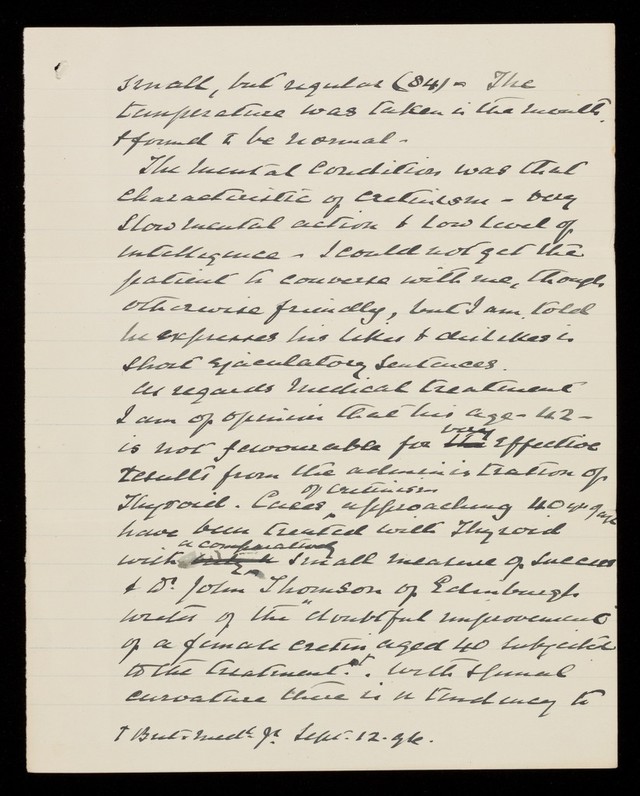 small, but regular (84) - The
temperature was taken in the mouth,
& found to be normal -
The mental condition was that
characteristic of cretinism - very
slow mental action & low level of
intelligence - I could not get the
patient to converse with me, though
otherwise friendly, but I am told
he expresses his likes & dislikes in
short ejaculatory sentences.
As regards Medical treatment
I am of opinion that his age - 42 -
is not favourable for very effective
results from the administration of
Thyroid. Cases of cretinism approaching 40 yrs of age
have been treated with Thyroid
with a comparatively small measure of success
& Dr. John Thomson of Edinburgh
writes of the "doubtful improvement"
of a female cretin aged 40 subjected
to the treatment. †. With spinal
curvature there is a tendency to
† Brit. Medl. Jl. Sept. 12. 96.